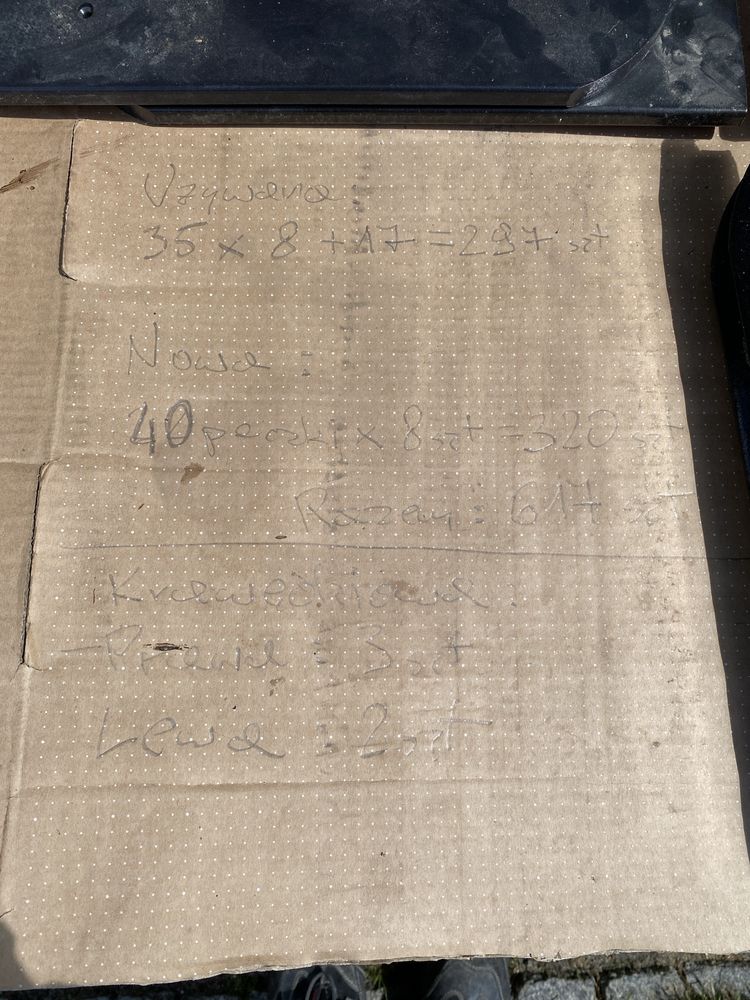 Vzywana
35 x 8 + 17 = 297 szt
Nowa :
40 paczki x 8 szt = 320 szt
Razem : 617 szt
Krawędziowa :
- Prawa : 3 szt
Lewa : 2 szt